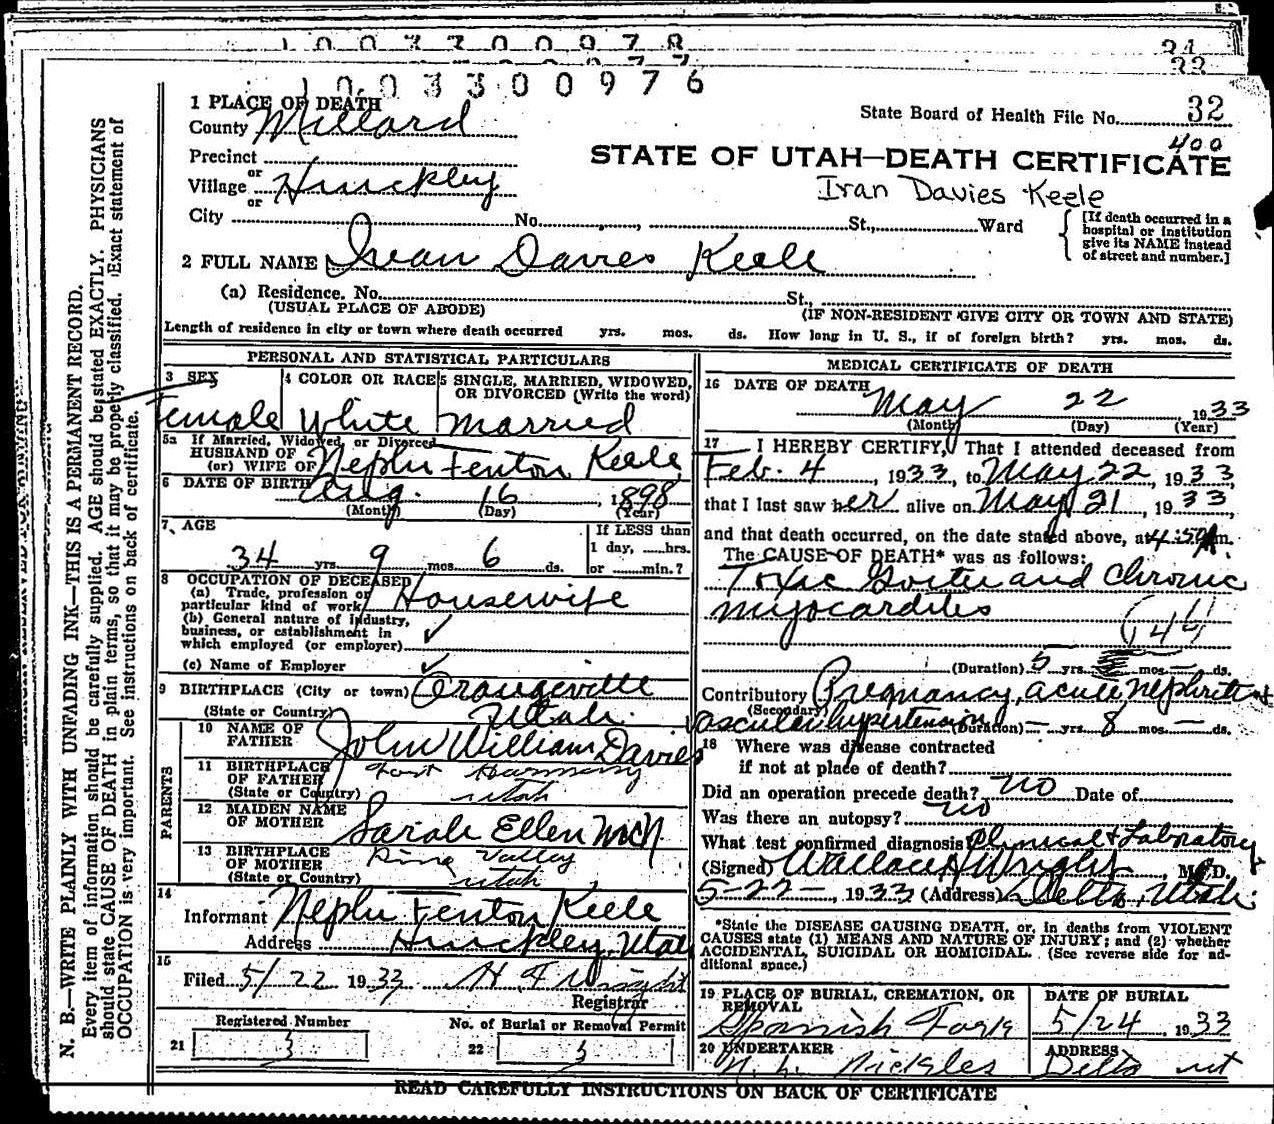 1003300978
34
33
1003300976
1 PLACE OF DEATH
County Millard
State Board of Health File No. 32
400
Precinct
or
Village Hinckley
or
STATE OF UTAH—DEATH CERTIFICATE
Ivan Davies Keele
City No. St., Ward
[If death occurred in a hospital or institution give its NAME instead of street and number.]
2 FULL NAME Ivean Davies Keele
(a) Residence. No. St.,
(USUAL PLACE OF ABODE) (IF NON-RESIDENT GIVE CITY OR TOWN AND STATE)
Length of residence in city or town where death occurred yrs. mos. ds. How long in U. S., if of foreign birth? yrs. mos. ds.
PERSONAL AND STATISTICAL PARTICULARS
3 SEX
Female
4 COLOR OR RACE
White
5 SINGLE, MARRIED, WIDOWED, OR DIVORCED (Write the word)
Married
5a If Married, Widowed, or Divorced
HUSBAND OF
(or) WIFE OF Nephi Fenton Keele
6 DATE OF BIRTH Aug. 16, 1898
(Month) (Day) (Year)
7. AGE
34 yrs 9 mos 6 ds.
If LESS than
1 day, hrs.
or min.?
8 OCCUPATION OF DECEASED
(a) Trade, profession or
particular kind of work Housewife
(b) General nature of industry,
business, or establishment in
which employed (or employer) ✓
(c) Name of Employer ✓
9 BIRTHPLACE (City or town) Orangeville
(State or Country) Utah.
PARENTS
10 NAME OF
FATHER John William Davies
11 BIRTHPLACE
OF FATHER Fort Harmony
(State or Country) Utah
12 MAIDEN NAME
OF MOTHER Sarah Ellen
13 BIRTHPLACE
OF MOTHER Pine Valley
(State or Country) Utah
14
Informant Nephi Fenton Keele
Address Hinckley, Utah
15
Filed 5/22 1933 H F Wright
Registrar
Registered Number
21 3
No. of Burial or Removal Permit
22 3
MEDICAL CERTIFICATE OF DEATH
16 DATE OF DEATH
May 22, 1933
(Month) (Day) (Year)
17 I HEREBY CERTIFY, That I attended deceased from
Feb. 4, 1933, to May 22, 1933,
that I last saw her alive on May 21, 1933,
and that death occurred, on the date stated above, at 4:50 A.m.
The CAUSE OF DEATH* was as follows:
Toxic Goiter and Chronic
myocarditis
(Duration) 5 yrs. mos. — ds.
Contributory Pregnancy, acute nephritis
(Secondary)
vascular hypertension (Duration) — yrs. 8 mos. — ds.
18 Where was disease contracted
if not at place of death?
Did an operation precede death? no Date of
Was there an autopsy? no
What test confirmed diagnosis Clinical & Laboratory
(Signed) Wallace H Wright, M.D.
5-22-, 1933 (Address) Delta, Utah.
*State the DISEASE CAUSING DEATH, or, in deaths from VIOLENT
CAUSES state (1) MEANS AND NATURE OF INJURY; and (2) whether
ACCIDENTAL, SUICIDAL OR HOMICIDAL. (See reverse side for ad-
ditional space.)
19 PLACE OF BURIAL, CREMATION, OR
REMOVAL
Spanish Fork
DATE OF BURIAL
5/24, 1933
20 UNDERTAKER
N. L. Nickles
ADDRESS
Delta ut
READ CAREFULLY INSTRUCTIONS ON BACK OF CERTIFICATE
N. B.—WRITE PLAINLY WITH UNFADING INK—THIS IS A PERMANENT RECORD.
Every item of information should be carefully supplied. AGE should be stated EXACTLY. PHYSICIANS
should state CAUSE OF DEATH in plain terms, so that it may be properly classified. Exact statement of
OCCUPATION is very important. See instructions on back of certificate.